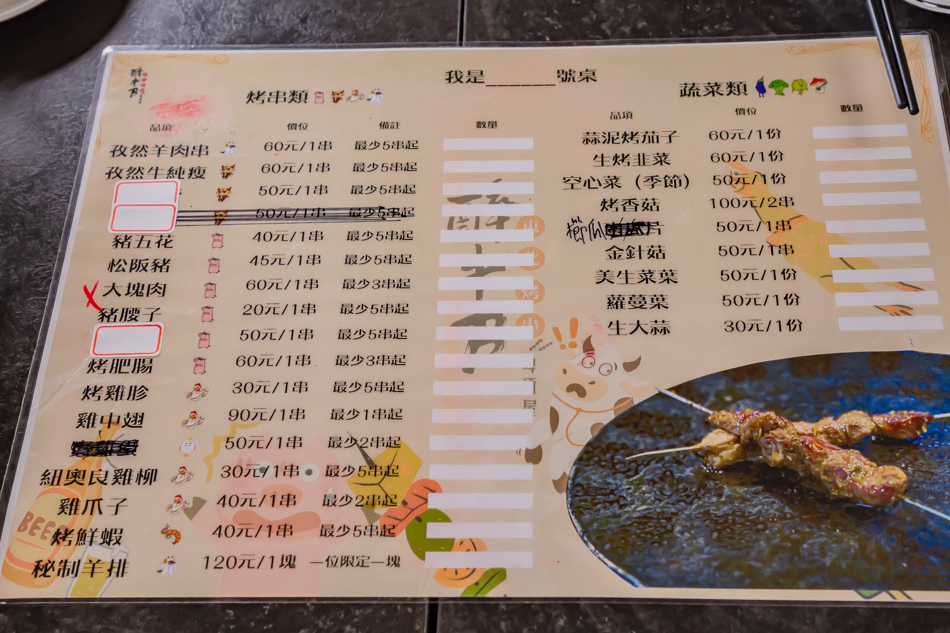 我是______號桌
烤串類
品項 價位 備註 數量
孜然羊肉串 60元/1串 最少5串起
孜然牛純瘦 60元/1串 最少5串起
50元/1串 最少5串起
50元/1串 最少5串起
豬五花 40元/1串 最少5串起
松阪豬 45元/1串 最少5串起
大塊肉 60元/1串 最少3串起
豬腰子 20元/1串 最少5串起
50元/1串 最少5串起
烤肥腸 60元/1串 最少3串起
烤雞胗 30元/1串 最少5串起
雞中翅 90元/1串 最少1串起
50元/1串 最少2串起
紐奧良雞柳 30元/1串 最少5串起
雞爪子 40元/1串 最少2串起
烤鮮蝦 40元/1串 最少5串起
秘制羊排 120元/1塊 一位限定一塊
BEER
蔬菜類
品項 價位 數量
蒜泥烤茄子 60元/1份
生烤韭菜 60元/1份
空心菜（季節） 50元/1份
烤香菇 100元/2串
櫛瓜片 50元/1份
金針菇 50元/1份
美生菜葉 50元/1份
蘿蔓葉 50元/1份
生大蒜 30元/1份